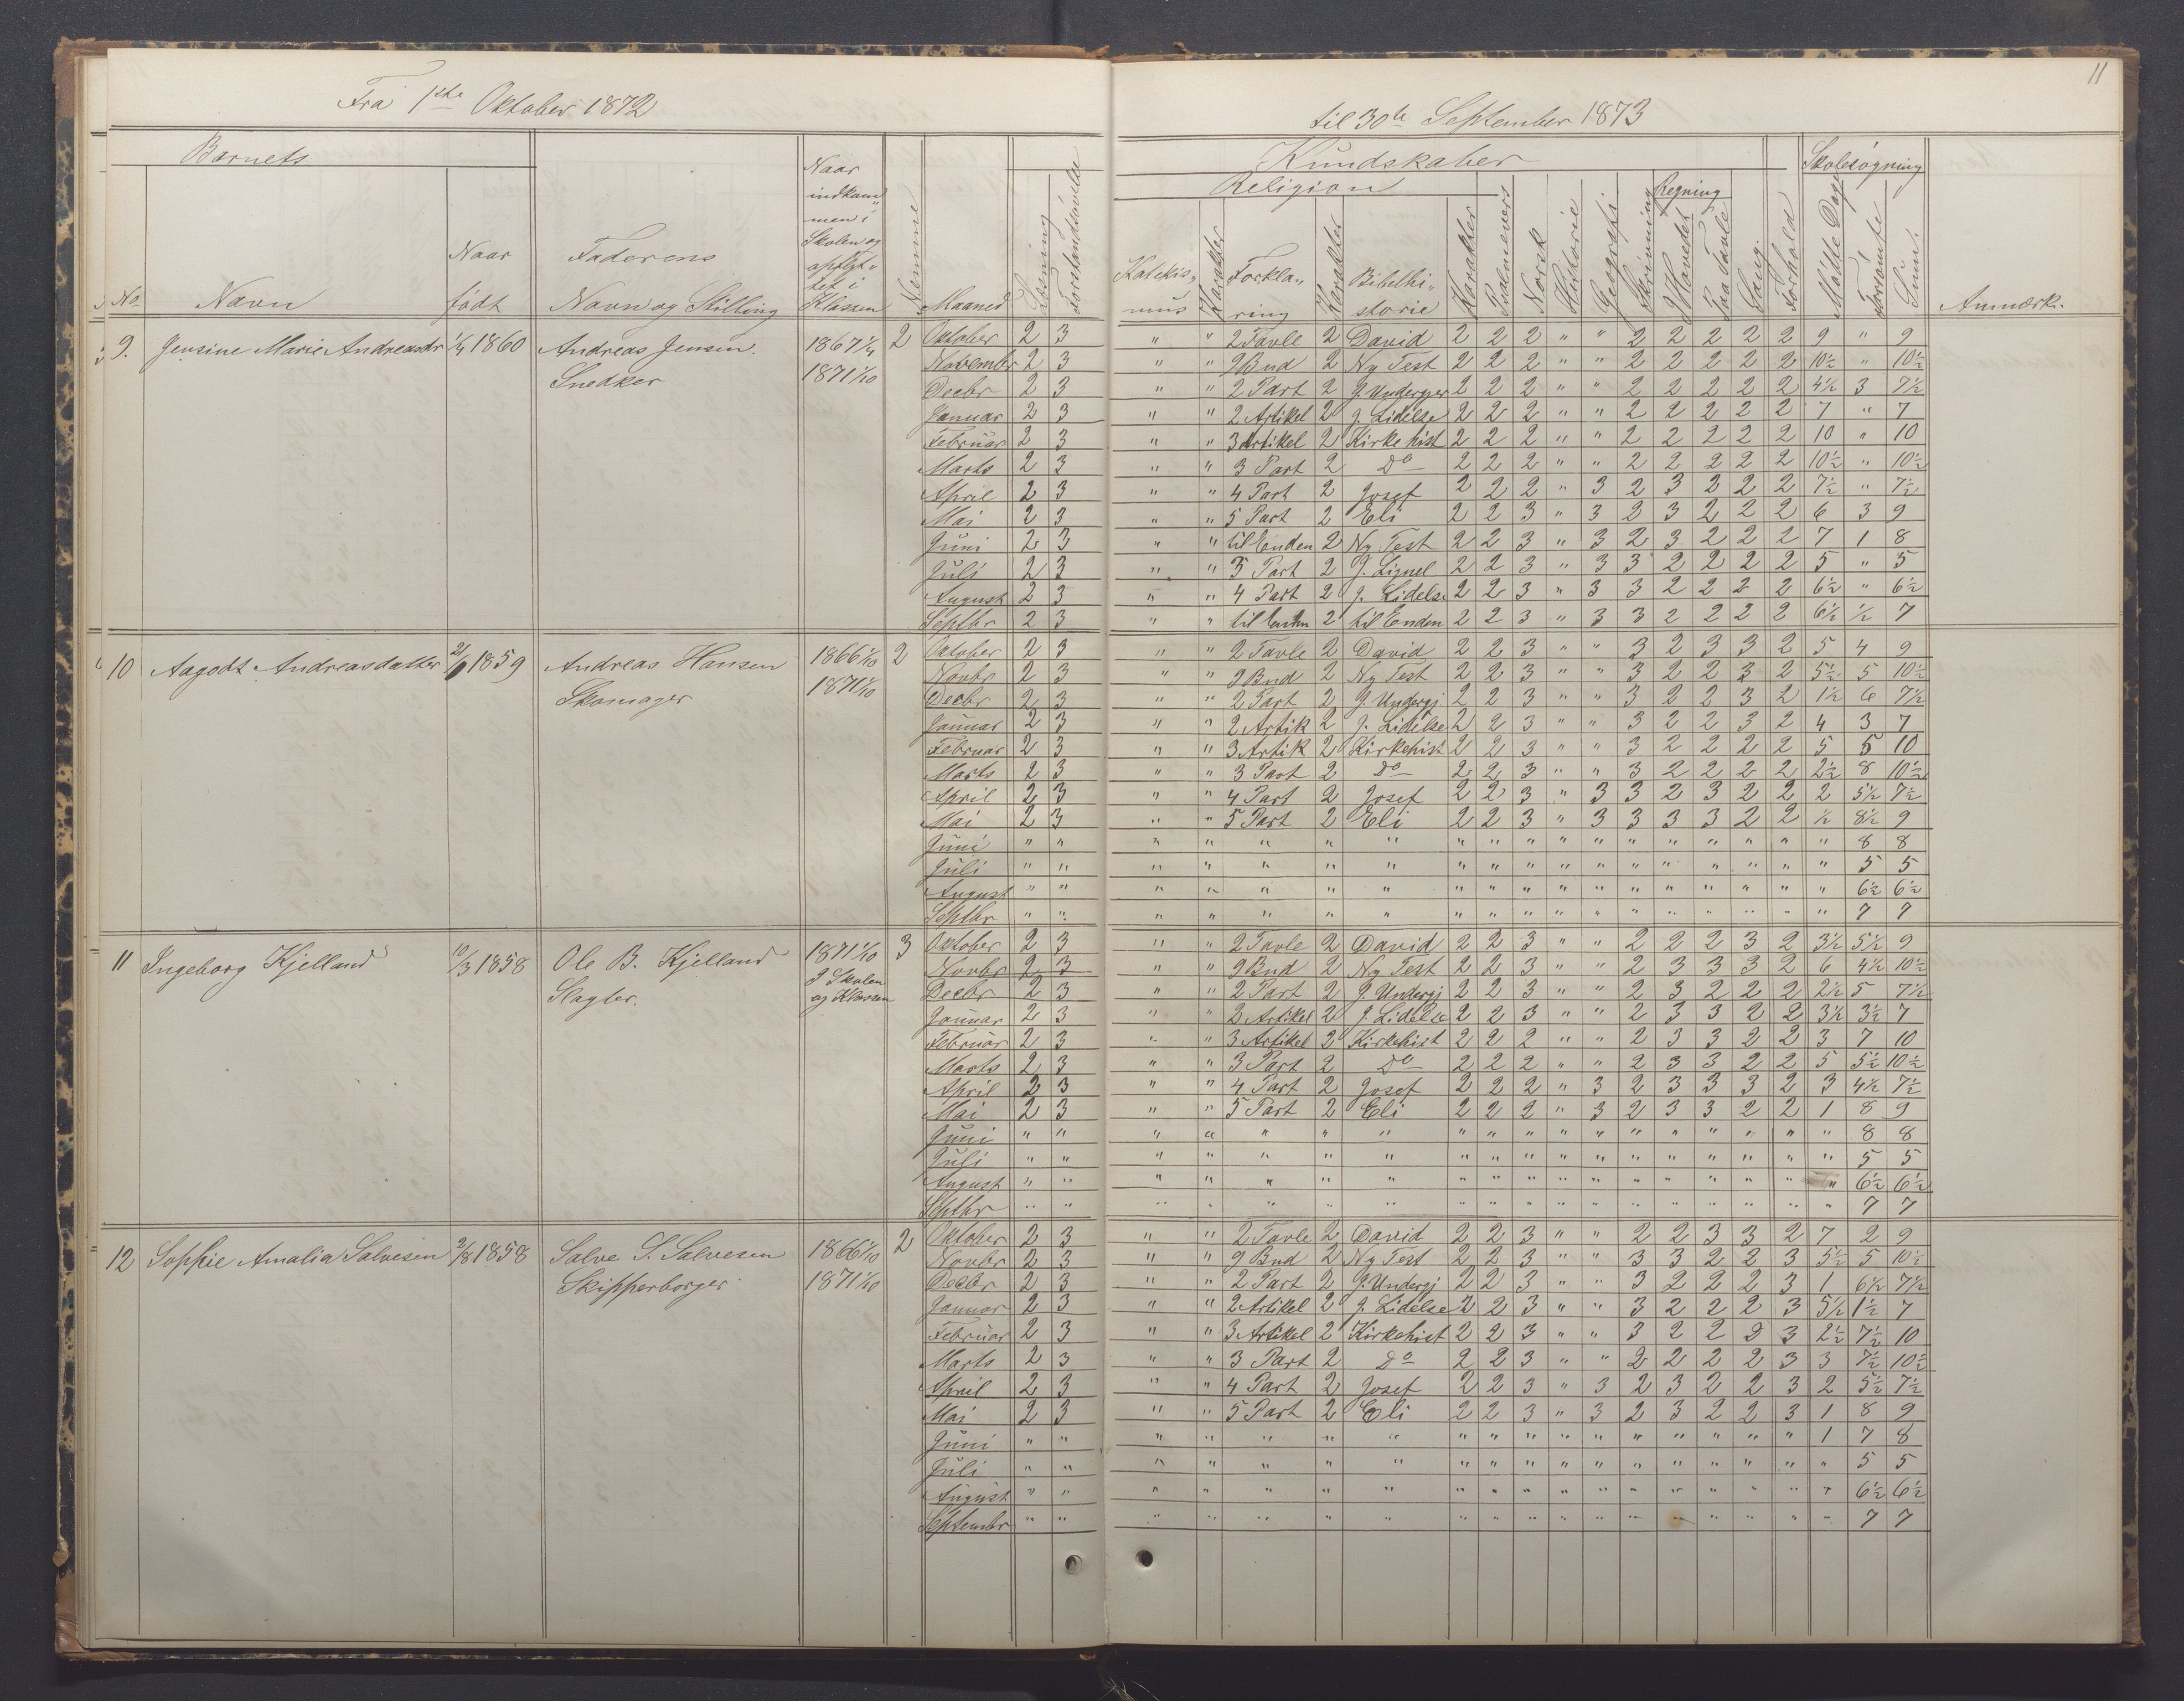 Fra 1ste Oktober 1872 til 30te September 1873
11
Barnets
No. Navn
Naar født
Faderens Navn og Stilling
Naar indkommen i Skolen og opflyttet i Klassen
Nemme
Maaned
Læsning
Forstandsøvelse
Kundskaber
Religion
Katekismus
Karakter
Forklaring
Karakter
Bibelhistorie
Karakter
Psalmevers
Norsk
Historie
Geografi
Skrivning
Regning
I Hovedet
Paa Tavle
Sang
Forhold
Skolesøgning
Mødte Dage
Forsømte
Sum.
Anmærk.
9. Jensine Marie Andreasdr 1/4 1860 Andreas Jensen. Snedker 1867 1/4 1871 1/10 2
Oktober 2 3 " " 2 Tavle 2 David 2 2 2 " " 2 2 2 2 2 9 " 9
Novembr 2 3 " " 9 Bud 2 Ny Test 2 2 2 " " 2 2 2 2 2 10½ " 10½
Decbr 2 3 " " 2 Part 2 J. Undergjer 2 2 2 " " 2 2 2 2 2 4½ 3 7½
Januar 2 3 " " 2 Artikel 2 J. Lidelse 2 2 2 " " 2 2 2 2 2 7 " 7
Februar 2 3 " " 3 Artikel 2 Kirkehist 2 2 2 " " 2 2 2 2 2 10 " 10
Marts 2 3 " " 3 Part 2 Do 2 2 2 " " 2 2 2 2 2 10½ " 10½
April 2 3 " " 4 Part 2 Josef 2 2 2 " 3 2 3 2 2 2 7½ " 7½
Mai 2 3 " " 5 Part 2 Eli 2 2 3 " 3 2 3 2 2 2 6 3 9
Juni 2 3 " " til Enden 2 Ny Test 2 2 3 " 3 2 3 2 2 2 7 1 8
Juli 2 3 " " 3 Part 2 J. Lignel 2 2 3 " 3 3 2 2 2 2 5 " 5
August 2 3 " " 4 Part 2 J. Lidelse 2 2 3 " 3 3 2 2 2 2 6½ " 6½
Septbr 2 3 " " til Enden 2 til Enden 2 2 3 " 3 3 2 2 2 2 6½ ½ 7
10 Aagodt Andreasdatter 1859 Andreas Hansen Skomager 1866 1/10 1871 1/10 2
Oktober 2 3 " " 2 Tavle 2 David 2 2 3 " " 3 2 3 3 2 5 4 9
Novbr 2 3 " " 9 Bud 2 Ny Test 2 2 3 " " 3 2 2 3 2 5½ 5 10½
Decbr 2 3 " " 2 Part 2 J. Undergj 2 2 3 " " 3 2 2 3 2 1½ 6 7½
Januar 2 3 " " 2 Artik 2 J. Lidelse 2 2 3 " " 3 2 2 3 2 4 3 7
Februar 2 3 " " 3 Artik 2 Kirkehist 2 2 3 " " 3 2 2 2 2 5 5 10
Marts 2 3 " " 3 Part 2 Do 2 2 3 " " 3 2 2 2 2 2½ 8 10½
April 2 3 " " 4 Part 2 Josef 2 2 3 " 3 3 2 3 2 2 2 5½ 7½
Mai 2 3 " " 5 Part 2 Eli 2 2 3 " 3 3 3 3 2 2 ½ 8½ 9
Juni " " " " " " " " " " " " " " " " " " 8 8
Juli " " " " " " " " " " " " " " " " " " 5 5
August " " " " " " " " " " " " " " " " " " 6½ 6½
Septbr " " " " " " " " " " " " " " " " " " 7 7
11 Ingeborg Kjelland 10/3 1858 Ole B. Kjelland Slagter. 1871 1/10 I Skolen og Klassen 3
Oktober 2 3 " " 2 Tavle 2 David 2 2 3 " " 2 2 2 3 2 3½ 5½ 9
Novbr 2 3 " " 9 Bud 2 Ny Test 2 2 3 " " 2 3 3 3 2 6 4½ 10½
Decbr 2 3 " " 2 Part 2 J. Undergj 2 2 3 " " 2 3 2 2 2 2½ 5 7½
Januar 2 3 " " 2 Artikel 2 J. Lidelse 2 2 3 " " 2 3 3 2 2 3½ 3½ 7
Februar 2 3 " " 3 Artikel 2 Kirkehist 2 2 2 " " 2 3 3 2 2 3 7 10
Marts 2 3 " " 3 Part 2 Do 2 2 2 " " 2 3 3 2 2 5 5½ 10½
April 2 3 " " 4 Part 2 Josef 2 2 2 " 3 2 3 3 3 2 3 4½ 7½
Mai 2 3 " " 5 Part 2 Eli 2 2 2 " 3 2 3 3 2 2 1 8 9
Juni " " " " " " " " " " " " " " " " " " 8 8
Juli " " " " " " " " " " " " " " " " " " 5 5
August " " " " " " " " " " " " " " " " " " 6½ 6½
Septbr " " " " " " " " " " " " " " " " " " 7 7
12 Sophie Amalia Salvesen 2/8 1858 Salve S. Salvesen Skipperborger 1866 1/10 1871 1/10 2
Oktober 2 3 " " 2 Tavle 2 David 2 2 3 " " 2 2 3 3 2 7 2 9
Novbr 2 3 " " 9 Bud 2 Ny Test 2 2 3 " " 3 3 2 2 3 5½ 5 10½
Decbr 2 3 " " 2 Part 2 J. Undergj 2 2 3 " " 3 2 2 2 3 1 6½ 7½
Januar 2 3 " " 2 Artikel 2 J. Lidelse 2 2 3 " " 3 2 2 2 3 5½ 1½ 7
Februar 2 3 " " 3 Artikel 2 Kirkehist 2 2 3 " " 3 2 2 2 3 2½ 7½ 10
Marts 2 3 " " 3 Part 2 Do 2 2 3 " " 2 2 2 2 3 3 7½ 10½
April 2 3 " " 4 Part 2 Josef 2 2 3 " 3 2 3 2 2 3 2 5½ 7½
Mai 2 3 " " 5 Part 2 Eli 2 2 3 " 3 2 3 2 2 3 1 8 9
Juni " " " " " " " " " " " " " " " " " 1 7 8
Juli " " " " " " " " " " " " " " " " " " 5 5
August " " " " " " " " " " " " " " " " " " 6½ 6½
Septembr " " " " " " " " " " " " " " " " " " 7 7